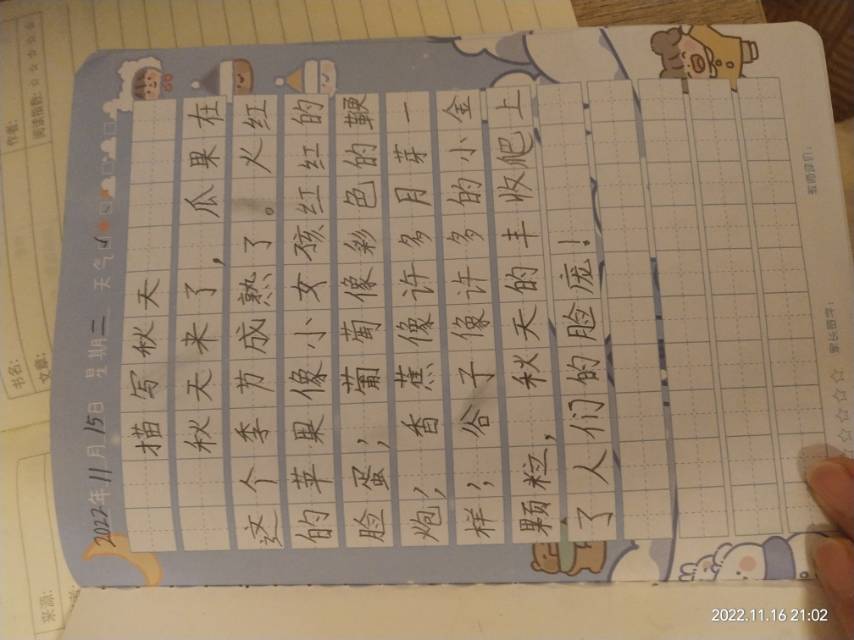 2022年11月15日 星期二 天气
描写秋天
秋天来了，瓜果在
这个季节成熟了。火红
的苹果像小女孩红红的
脸蛋，葡萄像彩色的鞭
炮，香蕉像许多月芽一
样，谷子像许多的小金
颗粒，秋天的丰收爬上
了人们的脸庞！
家长签字：
教师评价：
书名：
作者：
文章：
阅读指数：☆☆☆☆☆
来源：
2022.11.16 21:02